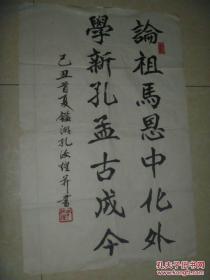 論祖馬恩中化外
學新孔孟古成今
己丑首夏鑑湖孔汝煌并書